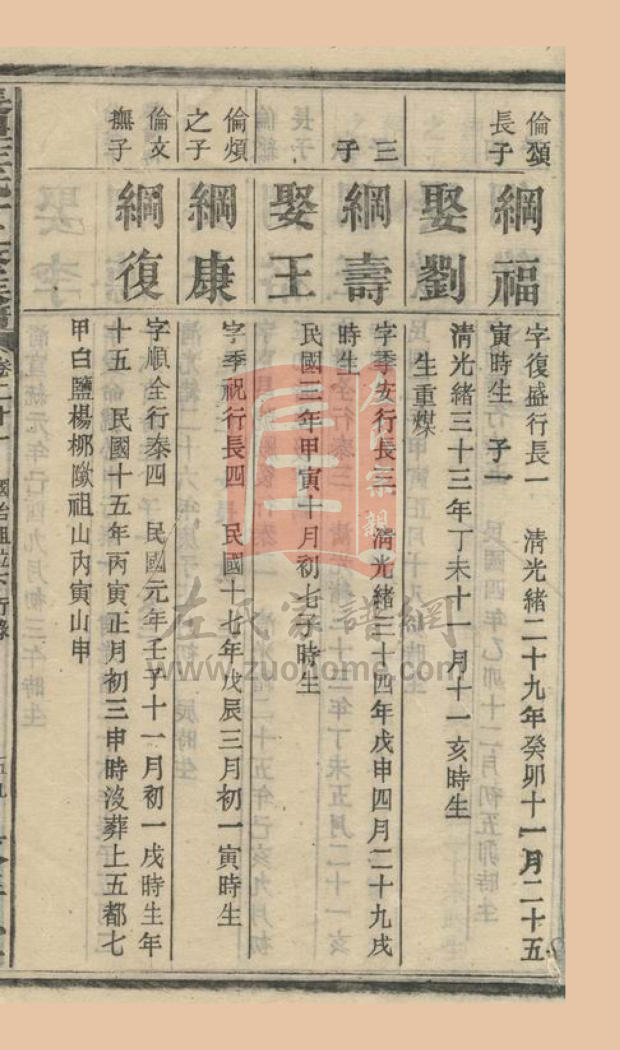 倫頌
長子
綱福
字復盛行長一　清光緒二十九年癸卯十一月二十五
寅時生　子一
娶劉
清光緒三十三年丁未十一月十一亥時生
生重煤
三
子
綱壽
字季安行長三　清光緒三十四年戊申四月二十九戌
時生
娶王
民國三年甲寅十月初七子時生
倫煩
之子
綱康
字季祝行長四　民國十七年戊辰三月初一寅時生
倫文
撫子
綱復
字順全行泰四　民國元年壬子十一月初一戌時生年
十五　民國十五年丙寅正月初三申時沒葬上五都七
甲白鹽楊柳墩祖山丙寅山申
卷二十一
左氏家譜網
www.zuohome.com